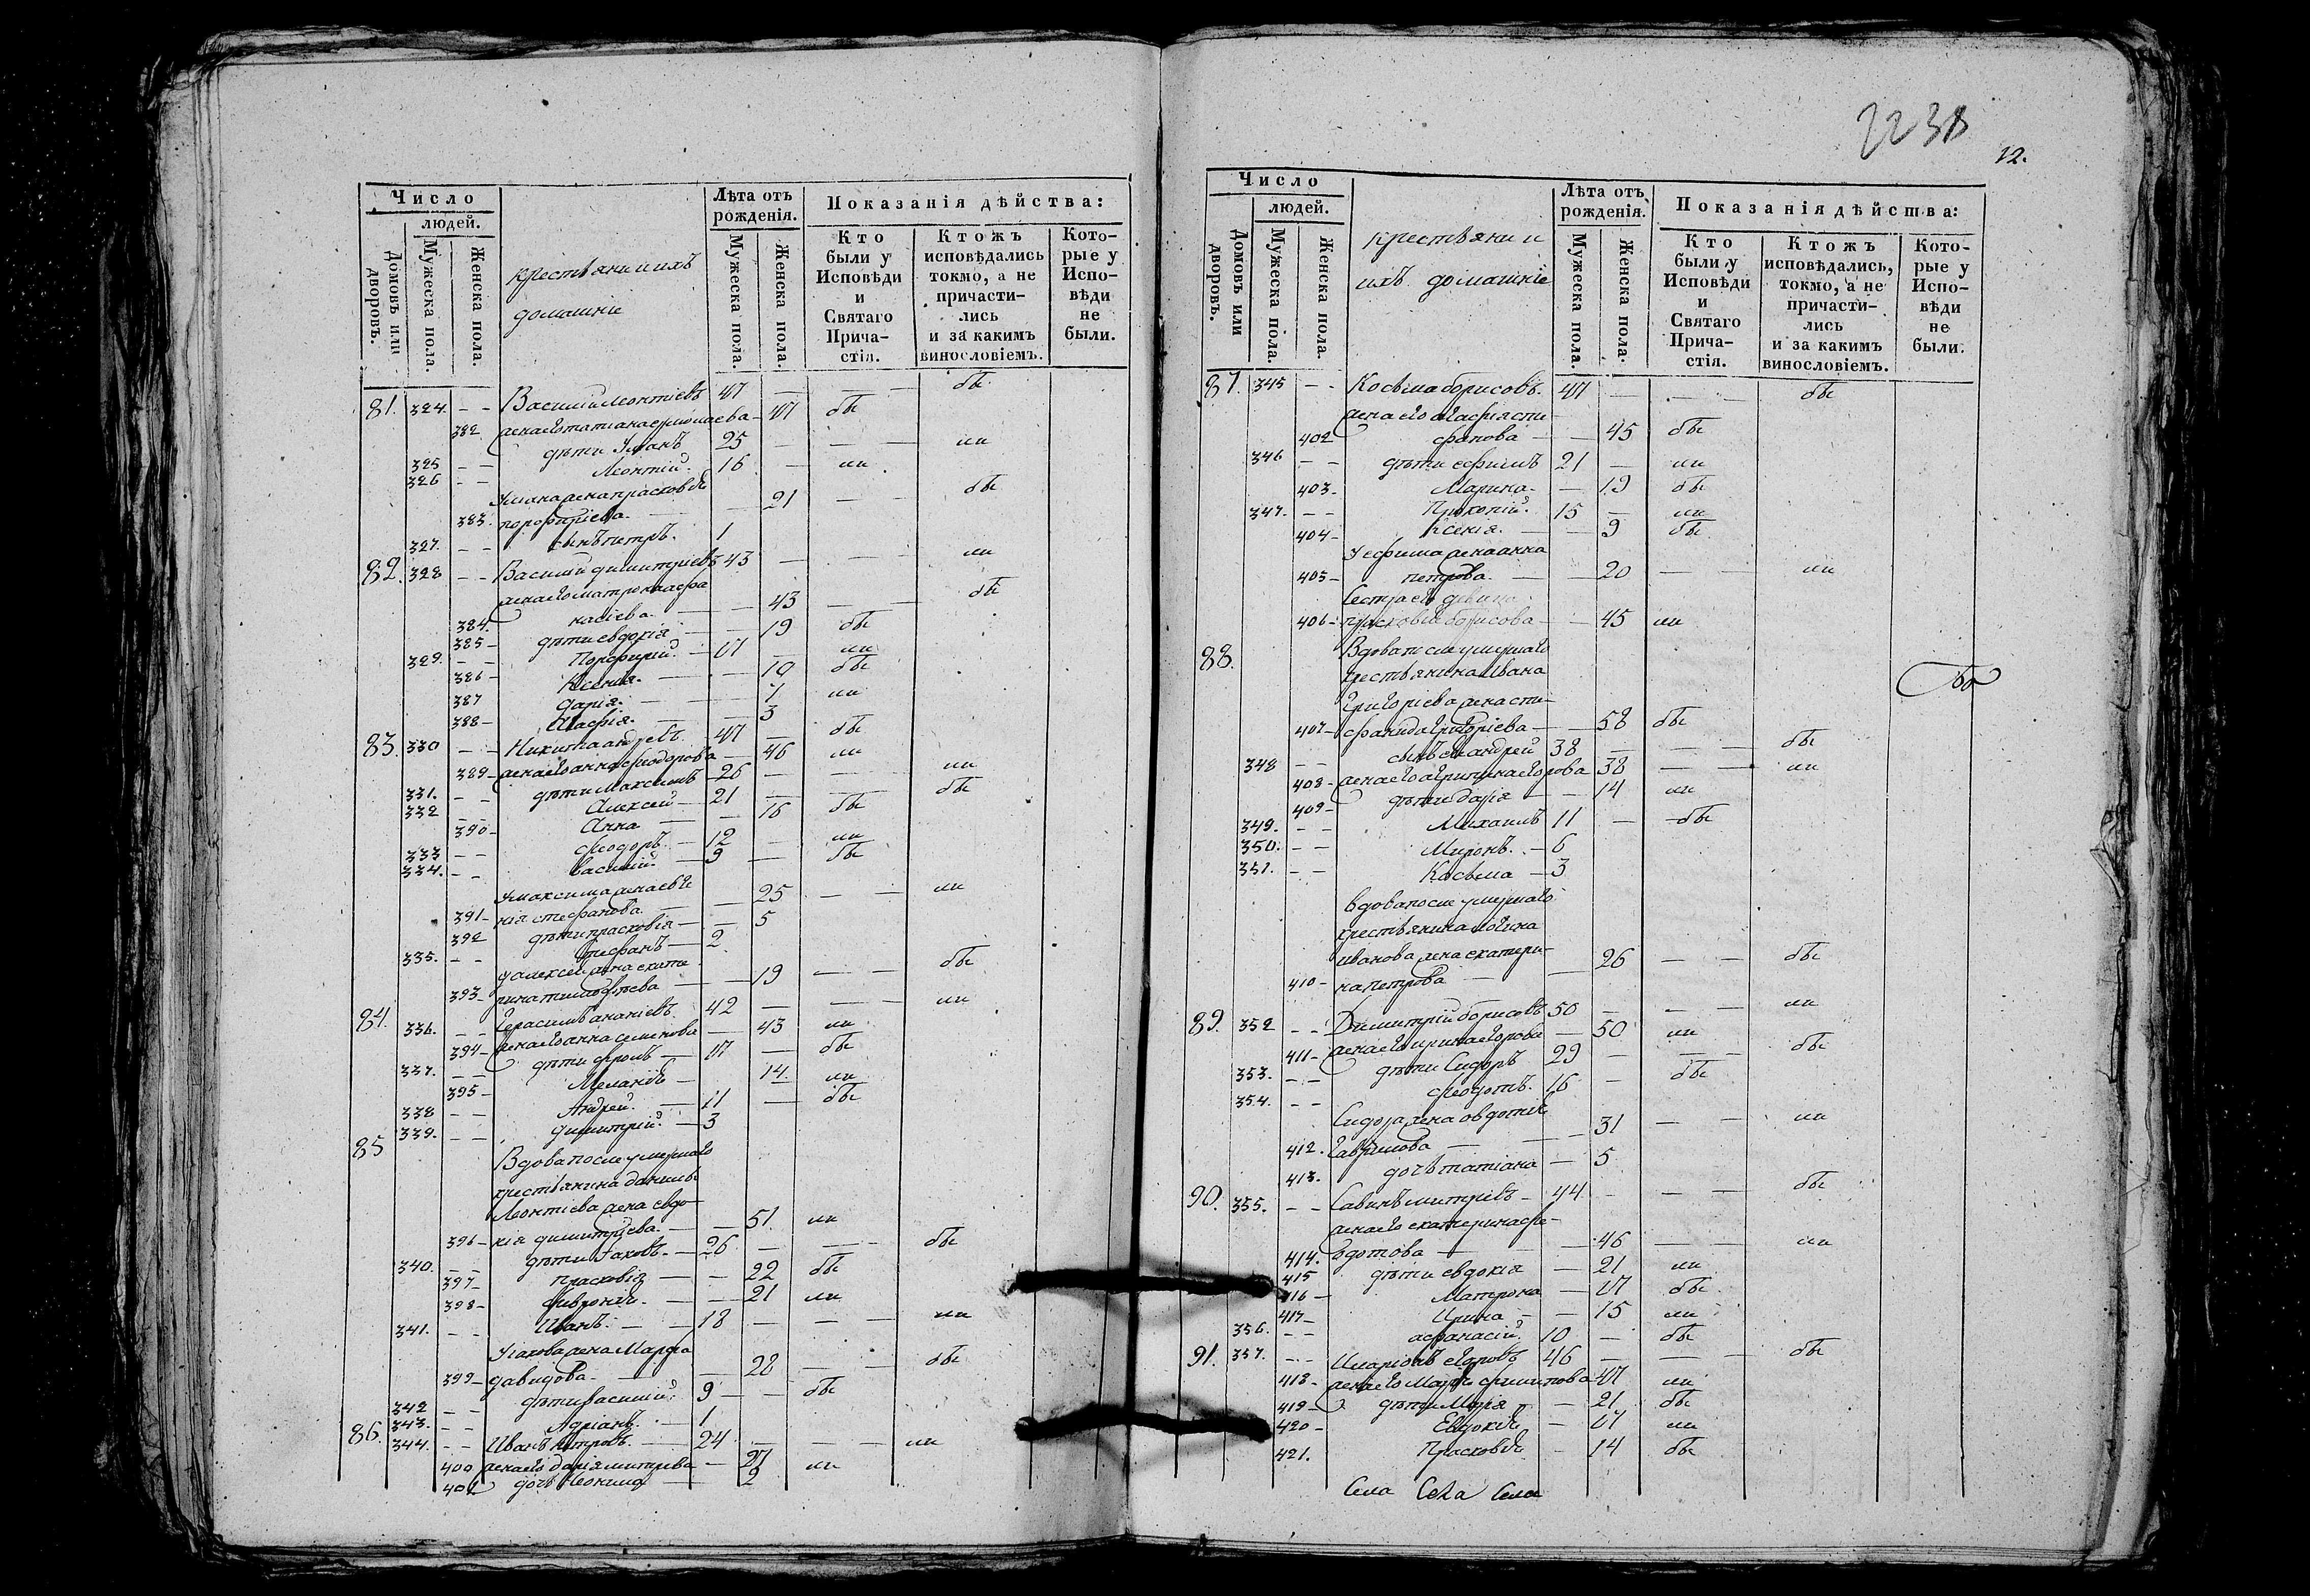 Число
людей.
Домовъ или дворовъ.
Мужеска пола.
Женска пола.
крестьяни ихъ
домашніе
Лѣта отъ рожденія.
Мужеска пола.
Женска пола.
Показанія дѣйства:
Кто были у Исповѣди и Святаго Причастія.
Ктожъ исповѣдались токмо, а не причастились и за какимъ винословіемъ.
Которые у Исповѣди не были.
81. 324. - - Василий Леонтіевъ 47 — — — бы
382 жена его татиана ермолаева — 47 бы
325 - - дѣти 25 — — — ли
326 - - Леонтій. 16 — ли
жена прасковія
383. порфиріева. — — 21 — — бы
327. - - сынъ петръ. 1
82. 328 - - Василий димитріевъ 43 — — — ли
жена его матрона афа
384. насіева. — — 43 — — бы
385 — дѣти евдокія — — 19 бы
329. - - Порфирий. — 17 — ли
386 — Ксения. — — 10 бы
387 дарія. — — 7 ли
388 — Агафія. — — 3
83. 330 - - Никита андреевъ. 47 — бы
389 — жена его анна феодорова — 46 ли
331. - - дѣти Максимъ 26 — — — ли
332 - - Алексей — 21 — — — бы
390 — Анна — — 16 бы
333 - - феодоръ. — 12 — ли
334. - - василий. — 9 — бы
у максима жена евге
391 — нія стефанова. — — 25 — — ли
392 дѣти прасковія — — 5
335. - - стефанъ — 2
у алексея жена екате
393 — рина тимофѣева — — 19 — — бы
84. 336. - - Герасимъ ананіевъ. 42 — — — ли
394 — жена его анна семенова — 43 ли
337. - - дѣти фролъ — 17 — бы
395 — Меланія — 14. ли
338 - - Андрей. — 11 — бы
339. - - димитрий. — 3
85 Вдова после умершаго
крестьянина данилы
Леонтіева жена евдо
396 — кія димитріева. — — 51. ли
340. - - дѣти Іаковъ. — 26 — — — бы
397 — прасковія — — 22 бы
398 — февронія. — — 21 ли
341. - - Иванъ. — — 18 — — — ли
У іакова жена Марфа
399 — давидова. — — 28 — — бы
342 - - дѣти василий. 9 — — бы
343. - - Адрианъ. — 1
86. 344. - - Иванъ петровъ. — 24 — — — ли
400 жена его дарія митриева — 27 ли
401 дочь Неонила — 2
2238
12.
Число
людей.
Домовъ или дворовъ.
Мужеска пола.
Женска пола.
крестьяни и
ихъ домашніе
Лѣта отъ рожденія.
Мужеска пола.
Женска пола.
Показанія дѣйства:
Кто были у Исповѣди и Святаго Причастія.
Ктожъ исповѣдались, токмо, а не причастились и за какимъ винословіемъ.
Которые у Исповѣди не были.
87. 345 - - Косьма борисовъ. 47 — — — бы
жена его агафія сти
402 фанова — — 45 бы
346 - - дѣти ефимъ 21 — ли
403 — Марина. — 19 бы
347. - - Прокопий. 15 — ли
404 — Ксенія. — — 9 бы
У ефима жена анна
405 — петрова. — — 20 — — ли
Сестра его девица
406 — прасковія борисова — — 45 ли
88. Вдова после умершаго
крестьянина Ивана
Григоріева жена сти-
407 — фанида григоріева — — 58 бы
348 - - сынъ ея андрей 38 — — — бы
408 — жена его агрипина егорова 38 — — ли
409 — дѣти дарія — — 14 ли
349. - - Михаилъ 11 — бы
350. - - Миронъ. — 6
351. - - Косьма — 3
вдова после умершаго
крестьянина логина
иванова жена екатери-
410 — на петрова — — 26 — — бы
89. 352 - - Димитрій борисовъ 50 — — — ли
411 — жена его ирина егорова — 50 ли
353. - - дѣти Сидоръ 29 — — — бы
354. - - феодотъ. 16 — бы
Сидора жена овдотія
412. Гаврилова — — 31 — — ли
413. дочь татіана — 5
90. 355. - - Савинъ митріевъ — 44 — — — бы
жена его екатерина фе-
414. одотова — — 46 — — ли
415 дѣти евдокія — 21 ли
416 — Матрона — 17 бы
417 — Ирина — — 15 ли
356. - - афанасій. 10 — бы
91. 357. - - Иларіонъ егоровъ 46 — — — бы
418 — жена его Марфа филипова 47 ли
419 — дѣти Марія — 21 бы
420 — Евдокія — 17 ли
421. Прасковія — 14 бы
Села Села Села